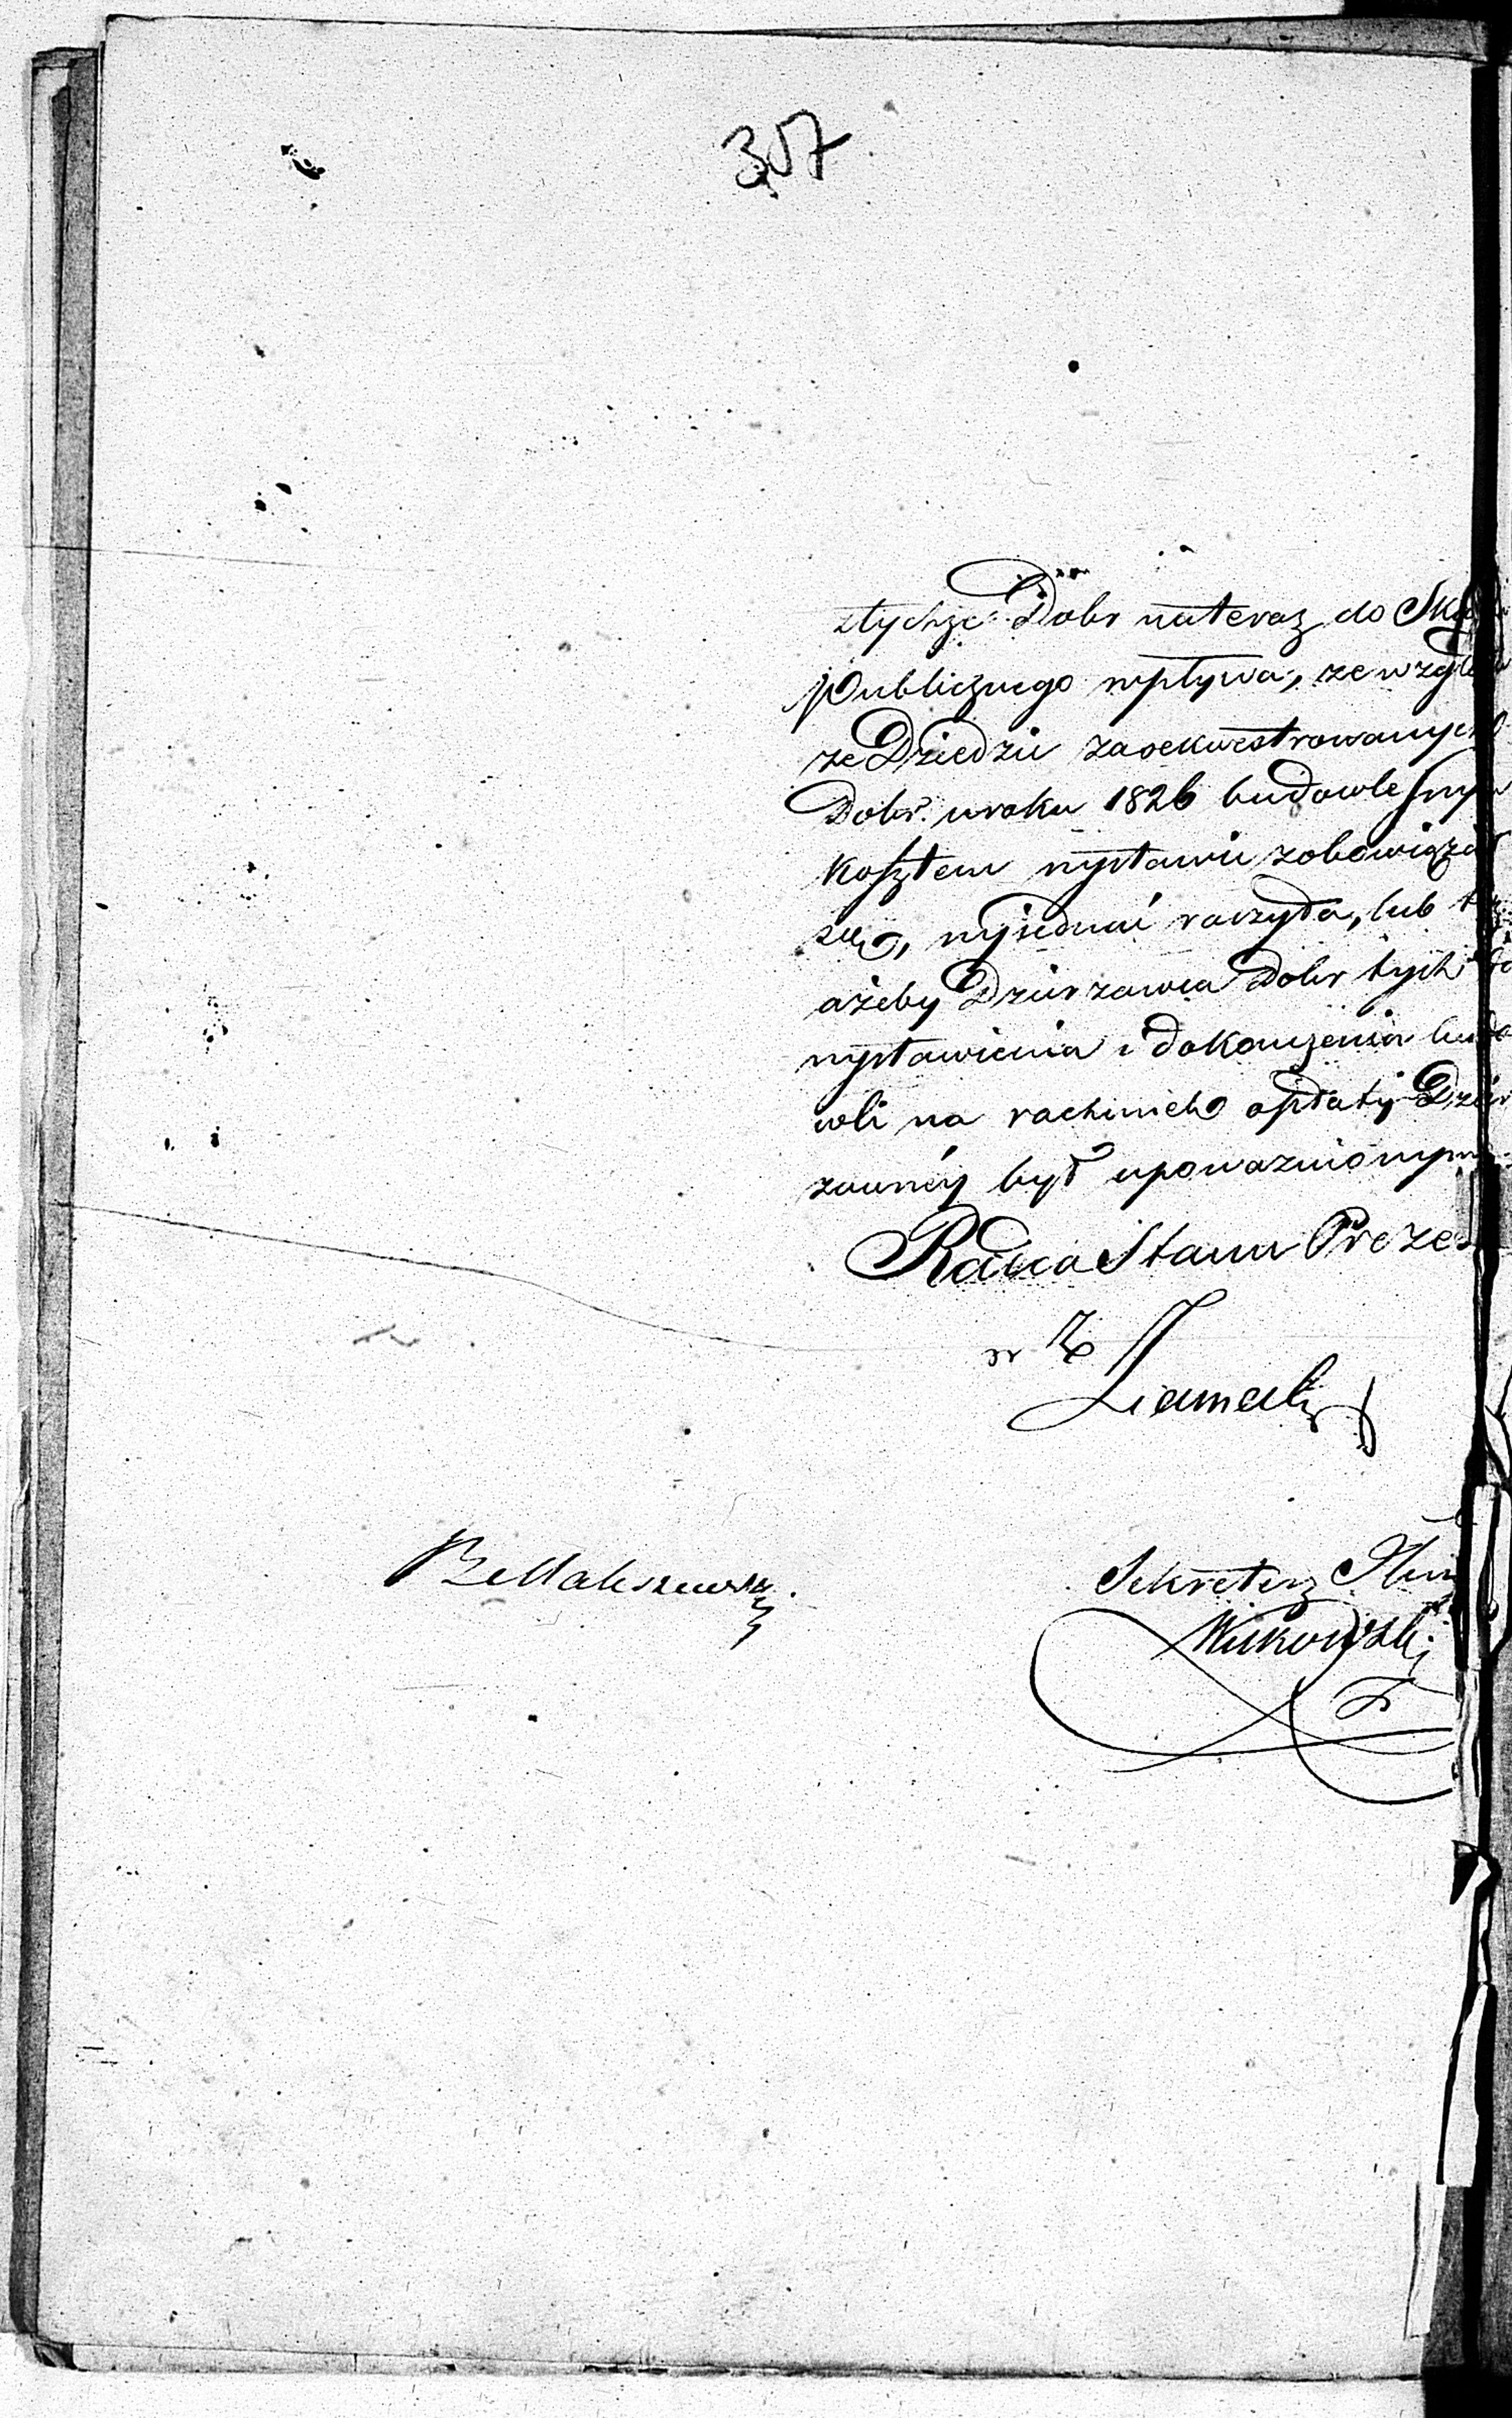 307
ztychże Dobr nateraz do Sk
Publicznego wpływa, ze wzglę
że Dziedzic zasekwestrowanych
Dobr w roku 1826 budowle swym
kosztem wystawić zobowiązał
się, wyjednać raczyła, lub
ażeby Dzierzawca Dobr tych do
wystawienia i dokonczenia budo
wli na rachunek opłaty Dzier
zawnéy był upoważnionym
Radca Stanu Prezes
w Z
Sekretarz